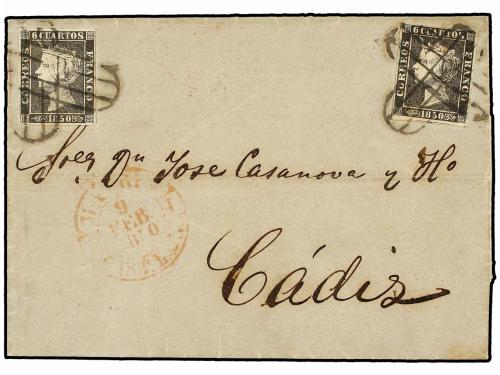 6 CUARTOS
CORREOS
FRANCO
1850
6 CUARTOS
CORREOS
FRANCO
1850
Sores Dn Jose Casanova y Ho
9
FEB
Cádiz